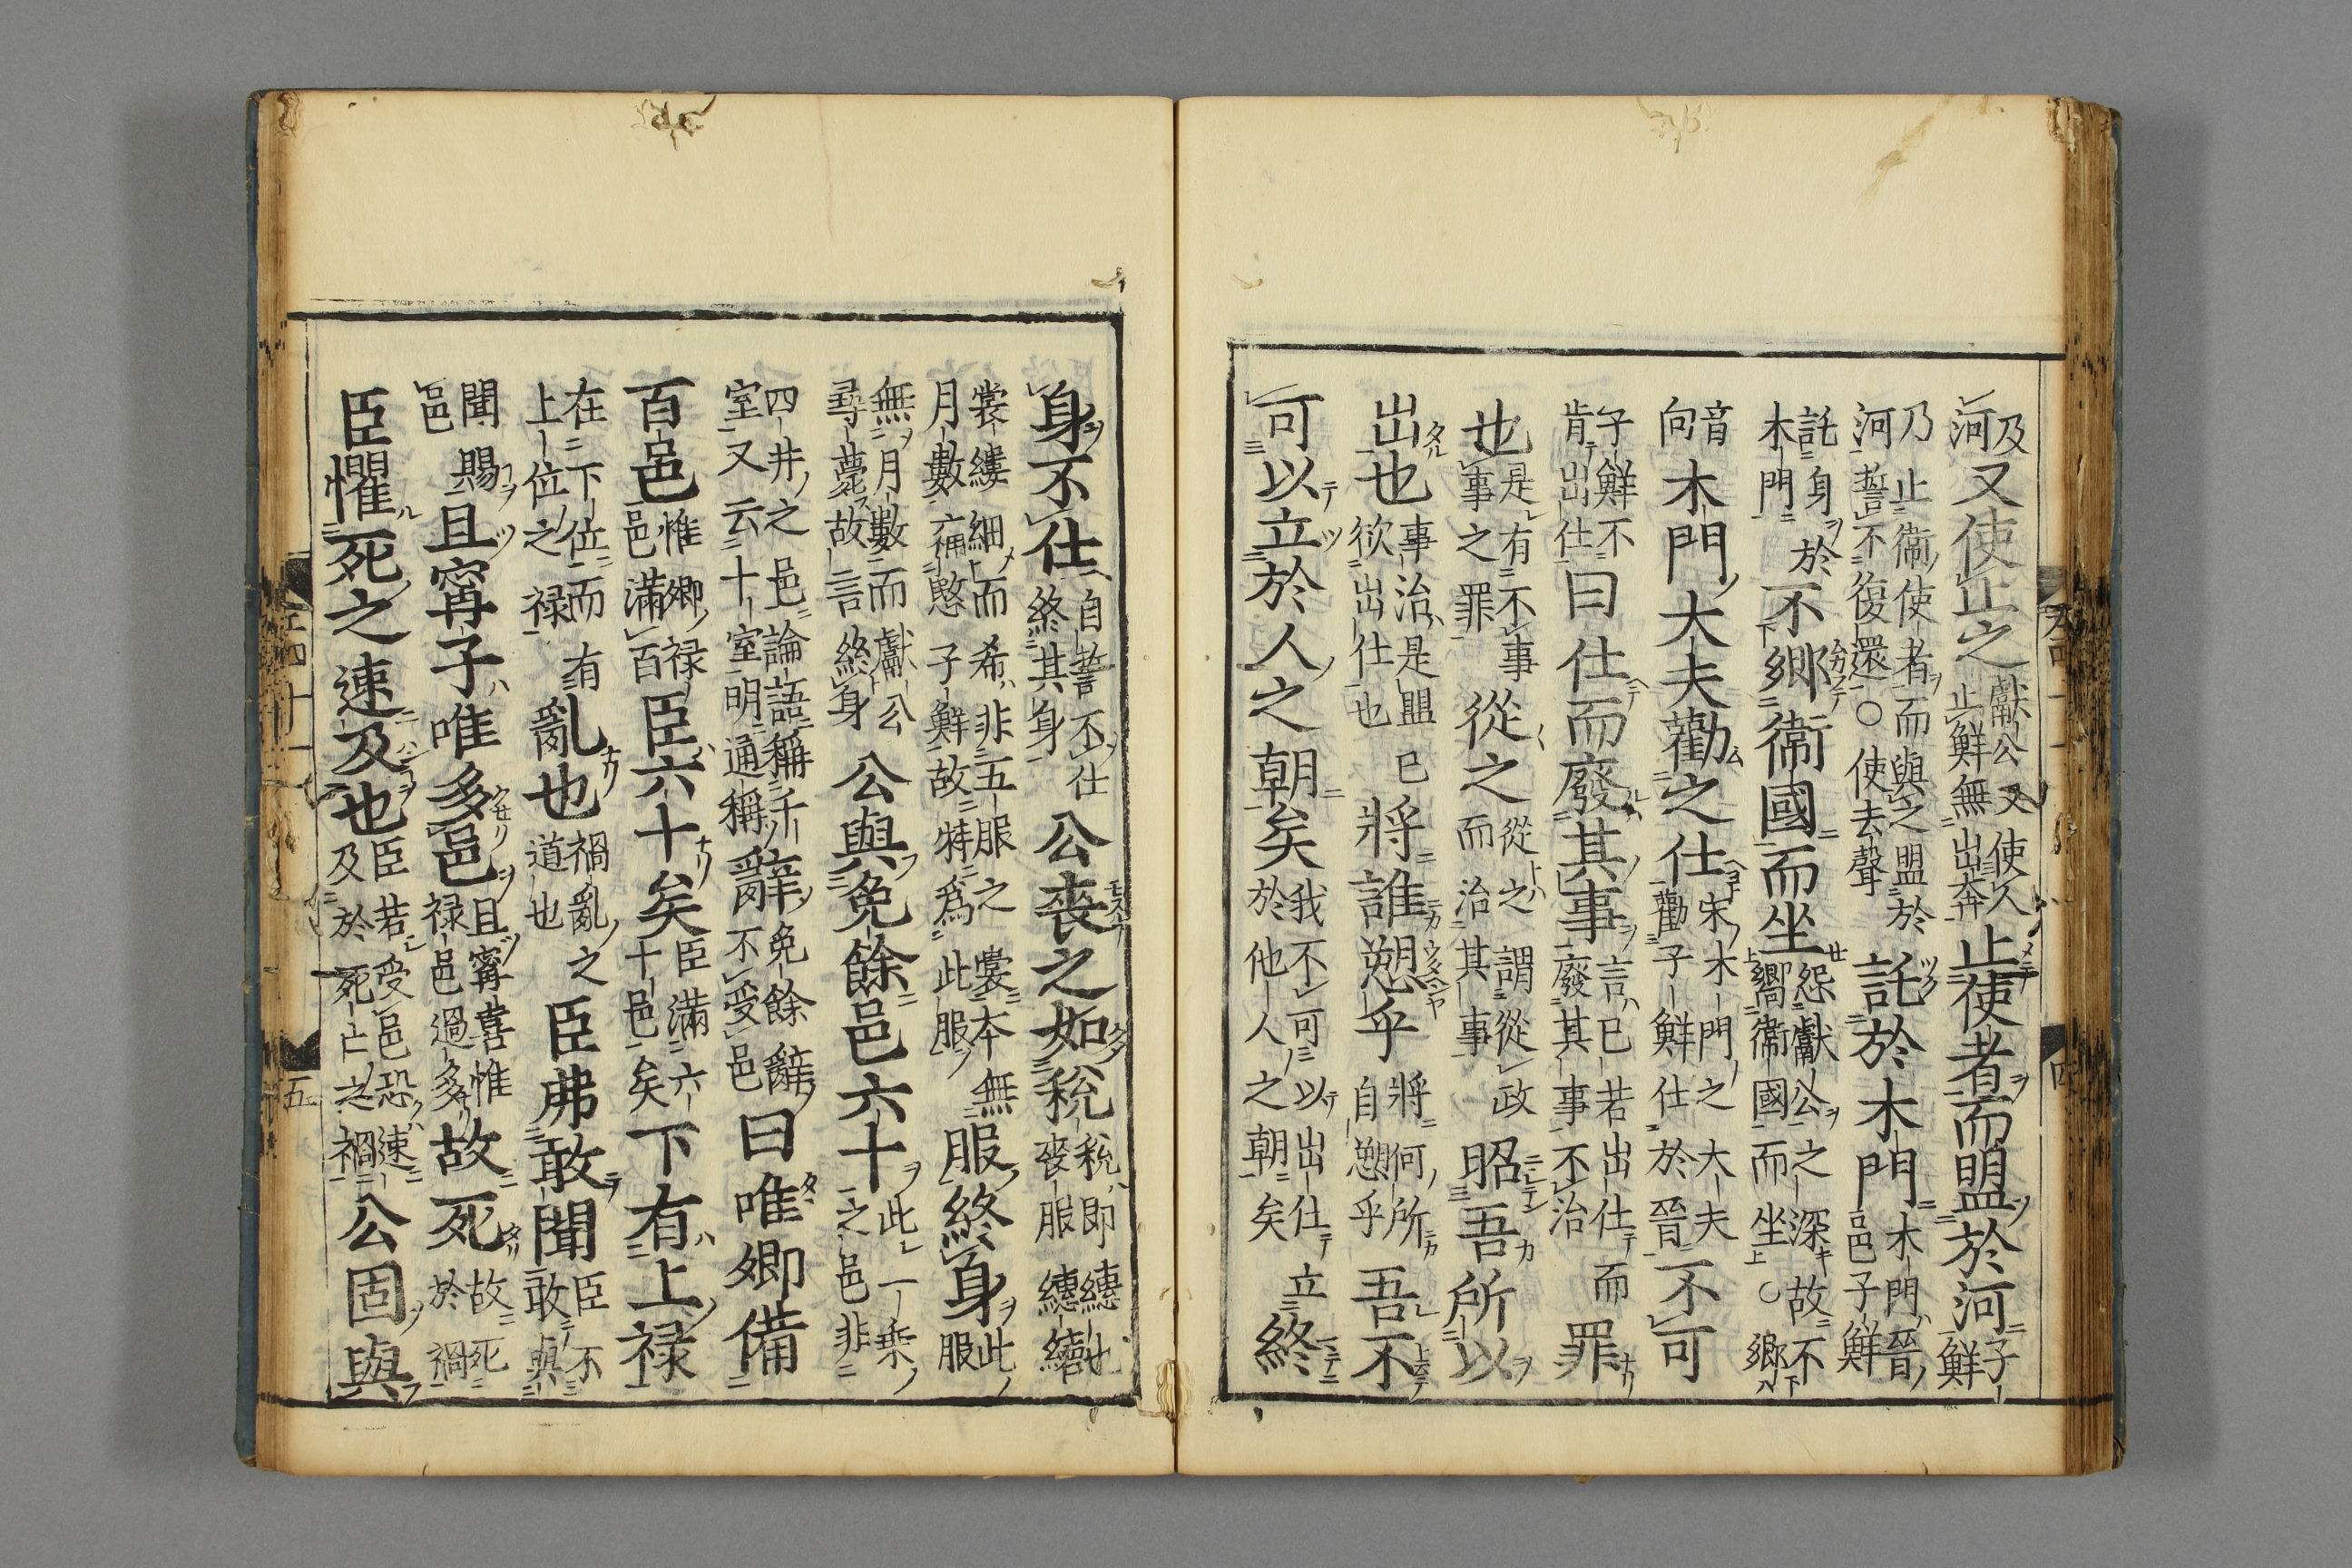 及河又使止之獻公又使久止鮮無出奔止使者而盟於河子鮮
乃止衞使者而與之盟於河誓不復還○使去聲託於木門木門晉邑子鮮
託身於木門不鄉衞國而坐怨獻公之深故不嚮衞國而坐○鄉
音向木門大夫勸之仕宋木門之大夫勸子鮮仕於晉不可
子鮮不肯出仕曰仕而廢其事言已若出仕而廢其事不治罪
也是有不事事之罪從之從之謂從政而治其事昭吾所以
出也事治是盟已欲出仕也將誰愬乎將何所自愬乎吾不
可以立於人之朝矣我不可以出仕立於他人之朝矣終
四
身不仕自誓不仕終其身公喪之如稅稅即繐也喪服繐縗
裳縷細而希非五服之裳本無月數痛愍子鮮故特爲此服服終身此服
無月數而獻公尋薨故言終身公與免餘邑六十此一乘之邑非
四井之邑論語稱千室又云十室明通稱辭免餘辭不受邑曰唯卿備
百邑惟卿祿邑滿百臣六十矣臣滿六十邑矣下有上祿
在下位而有上位之祿亂也禍亂之道也臣弗敢聞臣不敢與
聞賜邑且寗子唯多邑且寗喜惟祿邑過多故死故死於禍
臣懼死之速及也臣若受邑恐速及於死亡之禍公固與
五